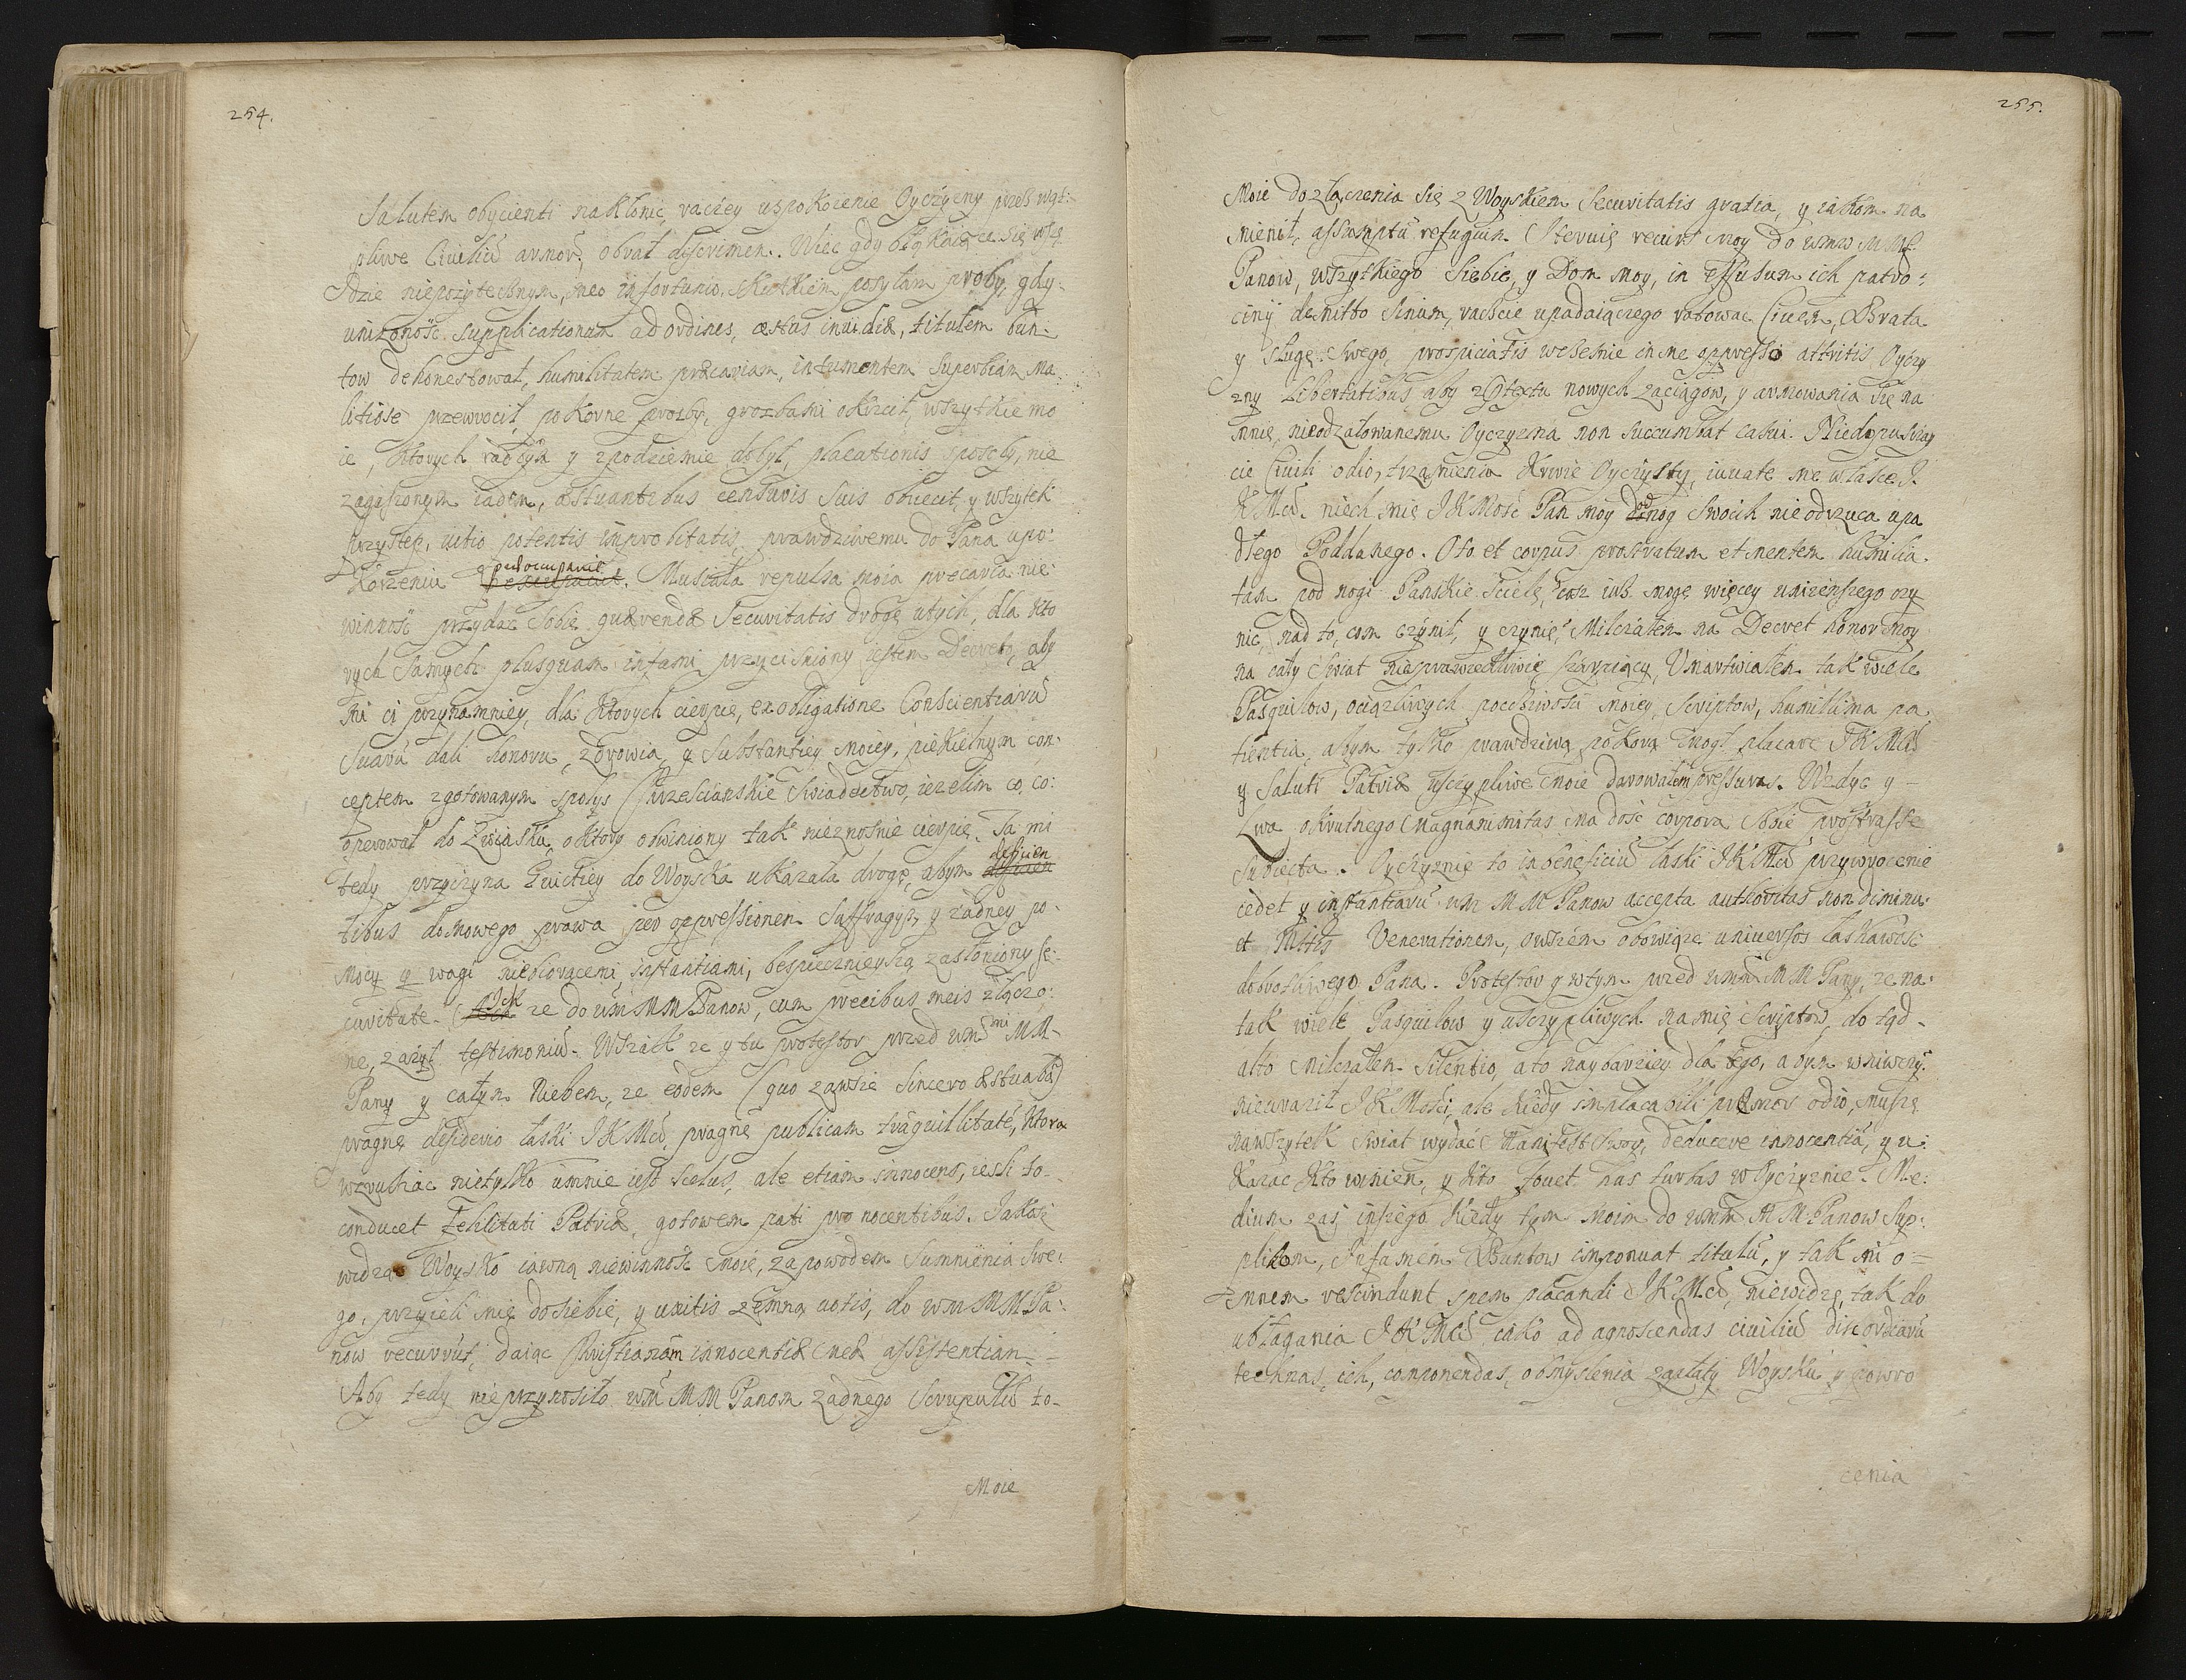 254.
Salutem obycienti nakłonic, raczey uspokoienie Oyczyzny przes wąt:
pliwe Ciuiliũ armorũ, obrał discrimen. Więc gdy błąkaiące się wszę
dzie niepozytecznym, meo infortunio, skutkiem posyłam proby, gdy
unizonośc supplicationum ad ordines, æstus inuidiæ, titulem bun:
tow dehonestował, humilitatem præcariam, in tumentem Superbiam ma:
litiose przewrocił, pokorne prozby, grozbami okrzcił, wszytkie mo
ie, ktorych y zpodziemie dobył, placationis sposoby, nie
zagaszonym iadem, æstuantibus censuris suis obiecit, y wszytek
przystęp, uitio potentis improbitatis, prawdziwemu do Pana upo:
korzenia præoccupavit. Musiała repulsa moia precaria nie:
winnośc przydac sobie guærendæ Securitatis drogę utych, dla kto
rych samych plusquam infami przycisniony iestem Decreto, aby
mi ci przynamniey, dla ktorych cierpię, ex obligatione Conscientiarũ
suarũ dali honoru, zdrowia, y Substantiey moiey, piekielnym con:
ceptem zgotowanym sposys Chrzescianskie swiadectwo, iezelim co, co:
operował do Zwiasku, oktory obwiniony tak nieznosnie cierpię. Ta mi
tedy przyczyna Zwietrzey do Woyska ukazała drogę, abym deficien
tibus domowego prawa pro oppressionem Suffragijs, y zadney po:
mocy y wagi niebioracemi instantiami, bespiecznieyszą zasłoniony se:
curitate. Ich ze do wm MM Panow, cum precibus meis złączo:
ne, zazył testimoniũ. Wszak ze y tu protestor przed wmũ mi MM
Pany y całym Niebem, ze eodem (quo zawsze Sincero æstuabã)
pragnę desiderio łaski JKMci, pragnę publicam trãquillitatẽ, ktora
wzruszac nietylko umnie iest scelus, ale etiam innocens, iesli to
conducet fehlitati Patriæ, gotowem pati pro nocentibus. Jakosz
widząc Woysko iawną niewinnośc moię, zapowodem Sumnienia Swe:
go, przyieli mię do siebie, y unitis zemną uotis, do wm MM Pa:
now recurrũt, daiąc Christianam innocentiæ meæ assistentiam.
Aby tedy nieprzynosiło wm MM Panom zadnego Scrupulũ to-
Moie
255.
Moie do złączenia się z Woyskiem Securitatis gratia, y iakom na
mienił, assumptũ refugium. Iteruię recurs moy do wmm MM
Panow, wszytkiego siebie, y Dom moy, in effusum ich patro:
cinij demitto sinum, raczcie upadaiącego ratowac Ciuem, Brata
y sługę swego, prospiciatis wczesnie in me oppresso attritis Oyczy
zny Libertatibus aby z prætextu nowych zaciągow, y armowania się na
mnię, nieodzałowanemu Oyczyzna non succumbat casui. Niedopuszczay
cie Ciuili odio, trząsnienia Krwie Oyczysty, iuuate me własce J.
KMci. niech mię JKMość Pan moy od nog swoich nieodrzuca upa
dłego Poddanego. Oto et corpus prostratum et mentem humilia:
tam pod nogi Panskie sciele, coz iuz mogę więcey unizenszego czy
nic, nad to, com czynił, y czynię, Milczałem na Decret honor moy
na cały swiat niesprawiedliwie szarpiący, Umartwiałem tak wiele
Pasquilow, uciązliwych poczciwosci moiey, Scriptow, humillima pa
tientia, abym tylko prawdziwą pokorą mogł placare JKMci
y Saluti Patriæ uszczypliwe moie darowałem pressuras. Wszdyc y
Lwa okrutnego Magnanimitas ma dość corpora sobie prostrasse
subiecta. Oyczyznie to in beneficiũ łaski JKMci przywrocenie
cedet y instantiarũ wm MM Panow accepta authoritas non diminu:
et Venerationem, owszem obowiąze uniuersos łaskawośc
dobrotliwego Pana. Protestor y wtym przed wmm MM Pany, ze na
tak wiele Pasquilow y uszczypliwych na mię Scriptow, do tąd
alto milczałem silentio, a to naybarziey dla tego, abym wniwczym
nieuraził JKMości, ale kiedy implacabili premor odio, muszę
nawszytek swiat wydać Manifest swoy, deducere innocentiã, y u:
kazac kto winien, y kto fouet has turbas w Oyczyznie. Me:
dium zas inszego kiedy tym moim do wmm MM Panow Sup:
plikom, infamem Buntow imponunt titulũ, y tak mi o
mnem rescindunt spem placandi JKMci, niewidzę, tak do
ubłagania JKMci iako ad agnoscendas ciuiliũ discordiarũ
technas, ich, componendas, obmyslenia zapłaty Woysku y powro
cenia